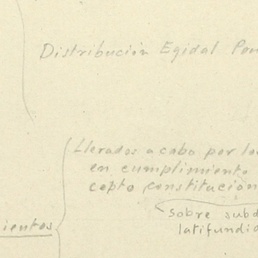 Distribución Egidal Por
Llevados a cabo por lo
en cumplimiento
cepto constitución
sobre subd
latifundio
ientos